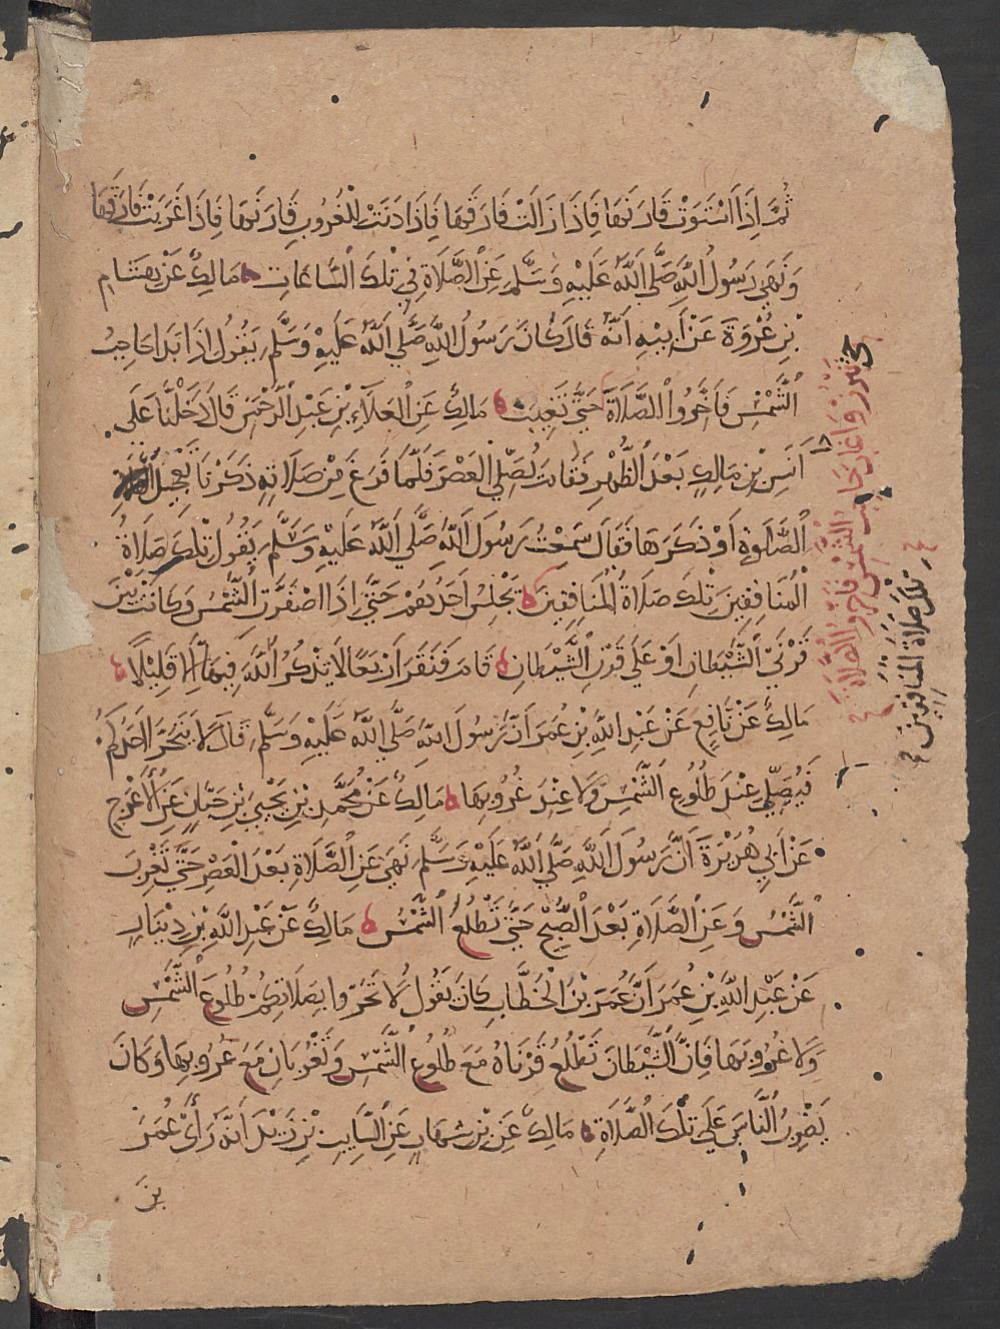 ثُمَّ اِذَا اسْتَوَتْ قَارَنَهَا فَاِذَا زَالَتْ فَارَقَهَا فَاِذَا دَنَتْ لِلْغُرُوبِ قَارَنَهَا فَاِذَا غَرَبَتْ فَارَقَهَا
وَنَهَى رَسُولُ اللَّهِ صَلَّى اللَّهُ عَلَيْهِ وَسَلَّمَ عَنِ الصَّلَاةِ فِي تِلْكَ السَّاعَاتِ ه مَالِكٌ عَنْ هِشَامِ
بْنِ عُرْوَةَ عَنْ أَبِيهِ اَنَّهُ قَالَ كَانَ رَسُولُ اللَّهِ صَلَّى اللَّهُ عَلَيْهِ وَسَلَّمَ يَقُولُ اِذَا بَدَا حَاجِبُ
الشَّمْسِ فَأَخِّرُوا الصَّلَاةَ حَتَّى تَغِيبَ ه مَالِكٌ عَنِ الْعَلَاءِ بْنِ عَبْدِ الرَّحْمَنِ قَالَ دَخَلْنَا عَلَى
اَنَسِ بْنِ مَالِكٍ بَعْدَ الظُّهْرِ فَقَامَ يُصَلِّي الْعَصْرَ فَلَمَّا فَرَغَ مِنْ صَلَاتِهِ ذَكَرْنَا تَعْجِيلَ
الصَّلَوةِ اَوْ ذَكَرَهَا فَقَالَ سَمِعْتُ رَسُولَ اللَّهِ صَلَّى اللَّهُ عَلَيْهِ وَسَلَّمَ يَقُولُ تِلْكَ صَلَاةُ
الْمُنَافِقِينَ تِلْكَ صَلَاةُ الْمُنَافِقِينَ ه يَجْلِسُ اَحَدُهُمْ حَتَّى اِذَا اصْفَرَّتِ الشَّمْسُ وَكَانَتْ بَيْنَ
قَرْنَيِ الشَّيْطَانِ اَوْ عَلَى قَرْنِ الشَّيْطَانِ ه قَامَ فَنَقَرَ اَرْبَعًا لَا يَذْكُرُ اللَّهَ فِيهَا اِلَّا قَلِيلًا ه
مَالِكٌ عَنْ نَافِعٍ عَنْ عَبْدِ اللَّهِ بْنِ عُمَرَ اَنَّ رَسُولَ اللَّهِ صَلَّى اللَّهُ عَلَيْهِ وَسَلَّمَ قَالَ لَا يَتَحَرَّ اَحَدُكُمْ
فَيُصَلِّي عِنْدَ طُلُوعِ الشَّمْسِ وَلَا عِنْدَ غُرُوبِهَا ه مَالِكٌ عَنْ مُحَمَّدِ بْنِ يَحْيَى بْنِ حَبَّانَ عَنِ الْأَعْرَجِ
عَنْ أَبِي هُرَيْرَةَ أَنَّ رَسُولَ اللَّهِ صَلَّى اللَّهُ عَلَيْهِ وَسَلَّمَ نَهَى عَنِ الصَّلَاةِ بَعْدَ الْعَصْرِ حَتَّى تَغْرُبَ
الشَّمْسُ وَعَنِ الصَّلَاةِ بَعْدَ الصُّبْحِ حَتَّى تَطْلُعَ الشَّمْسُ ه مَالِكٌ عَنْ عَبْدِ اللَّهِ بْنِ دِينَارٍ
عَنْ عَبْدِ اللَّهِ بْنِ عُمَرَ اَنَّ عُمَرَ بْنَ الْخَطَّابِ كَانَ يَقُولُ لَا تَحَرَّوا بِصَلَاتِكُمْ طُلُوعَ الشَّمْسِ
وَلَا غُرُوبَهَا فَاِنَّ الشَّيْطَانَ تَطْلُعُ قَرْنَاهُ مَعَ طُلُوعِ الشَّمْسِ وَتَغْرُبَانِ مَعَ غُرُوبِهَا وَكَانَ
يَضْرِبُ النَّاسَ عَلَى تِلْكَ الصَّلَاةِ ه مَالِكٌ عَنِ بْنِ شِهَابٍ عَنِ السَّايِبِ بْنِ يَزِيدَ اَنَّهُ رَأَى عُمَرَ
بْنَ
الشَّمْسِ فَأَخِّرُوا الصَّلَاةَ
تِلْكَ صَلَاةُ الْمُنَافِقِينَ